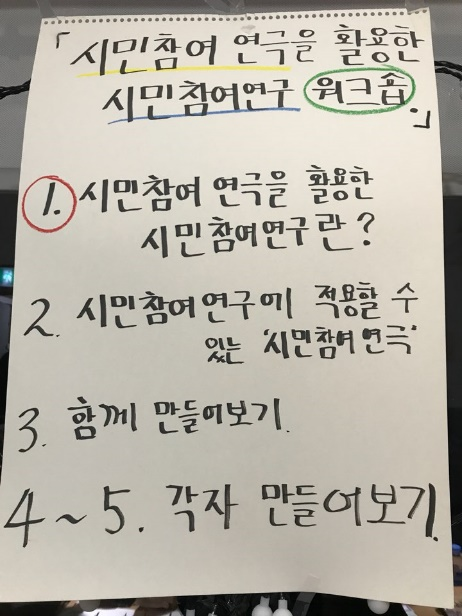 「시민참여 연극을 활용한
시민참여연구 워크숍.」
1. 시민참여 연극을 활용한
시민참여연구란?
2. 시민참여연구에 적용할 수
있는 '시민참여 연극'
3. 함께 만들어보기.
4~5. 각자 만들어보기.